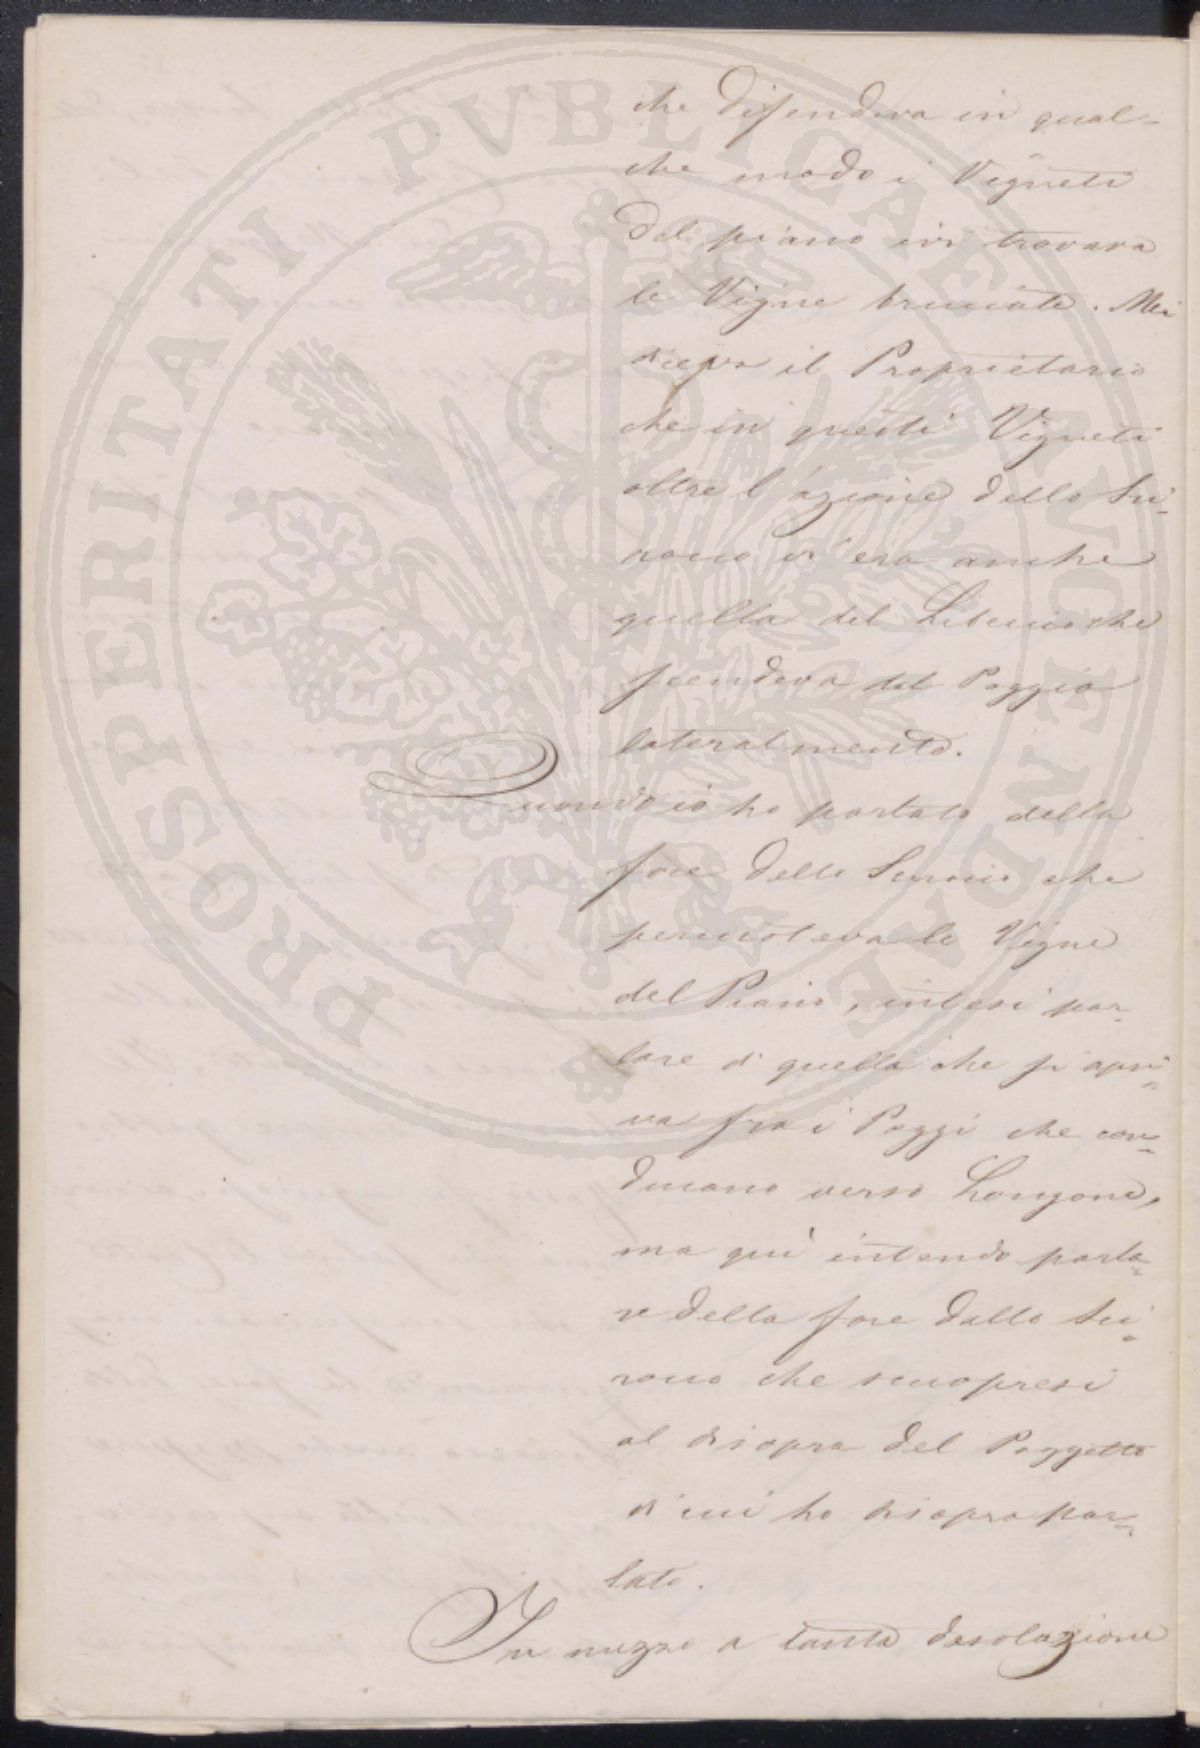 che difendeva in qual-
che modo i Vigneti
del piano ivi trovava
le Vigne bruciate. Mi
diceva il Proprietario
che in questi Vigneti
oltre l'azione dello Sci-
rocco vi era anche
quella del Libeccio che
scendeva dal Poggio
lateralmente.
Quando io ho parlato della
foce dello Scirocco che
percuoteva le Vigne
del Piano, intesi par-
lare di quella che si apri-
va fra i Poggi che con-
ducano verso Longone,
ma qui intendo parla-
re della foce dello Sci-
rocco che scuopresi
al disopra del Poggetto
di cui ho disopra par-
lato.
In mezzo a tanta desolazione
PROSPERITATI PVBLICAE AVGENDAE